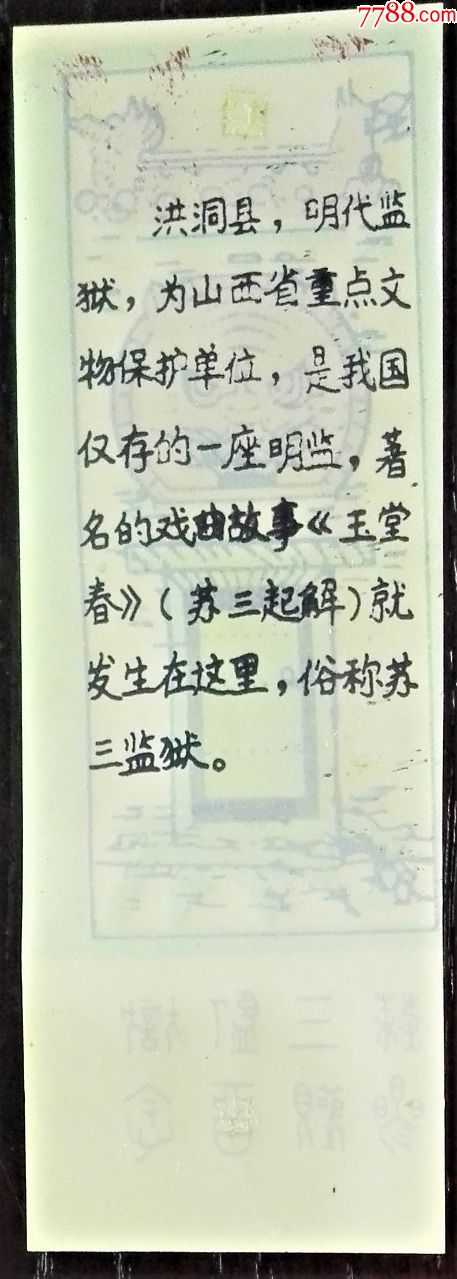 7788.com
洪洞县，明代监
狱，为山西省重点文
物保护单位，是我国
仅存的一座明监，著
名的戏曲故事《玉堂
春》（苏三起解）就
发生在这里，俗称苏
三监狱。